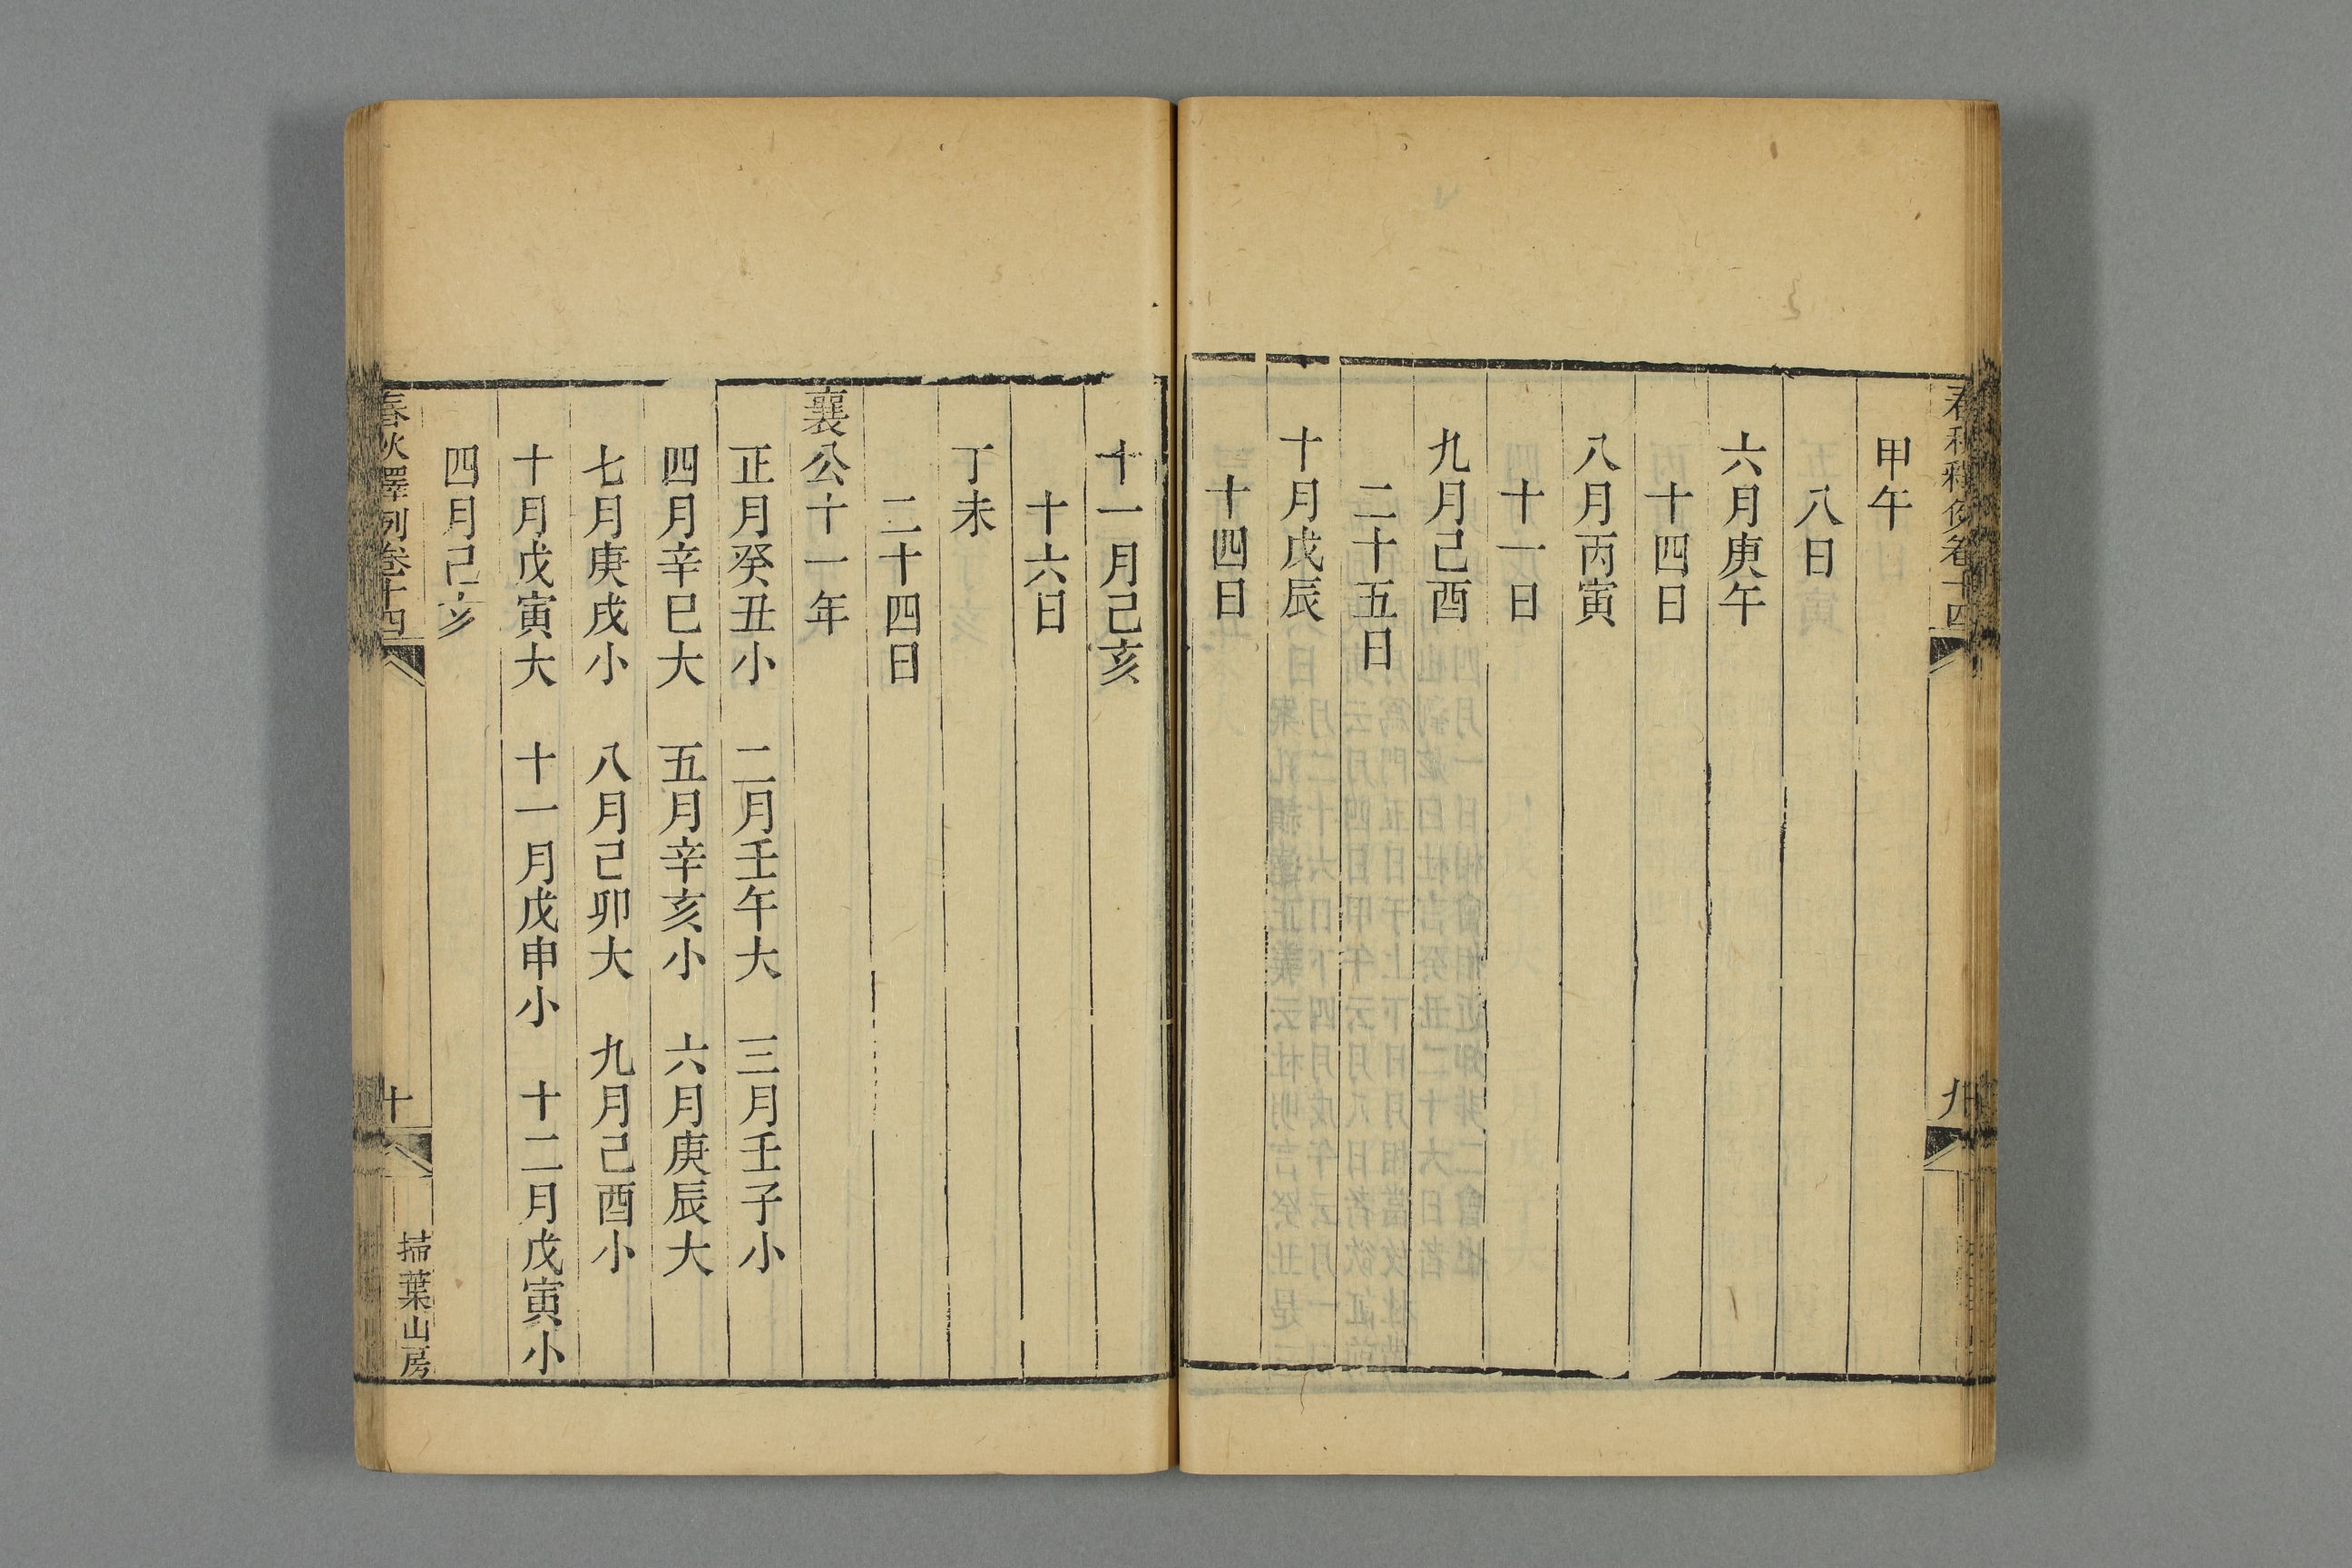 春秋釋例卷十四
九
甲午
八日
六月庚午
十四日
八月丙寅
十一日
九月己酉
二十五日
十月戊辰
十四日
十一月己亥
十六日
丁未
二十四日
襄公十一年
正月癸丑小　二月壬午大　三月壬子小
四月辛巳大　五月辛亥小　六月庚辰大
七月庚戌小　八月己卯大　九月己酉小
十月戊寅大　十一月戊申小　十二月戊寅小
四月己亥
春秋釋例卷十四
十
掃葉山房